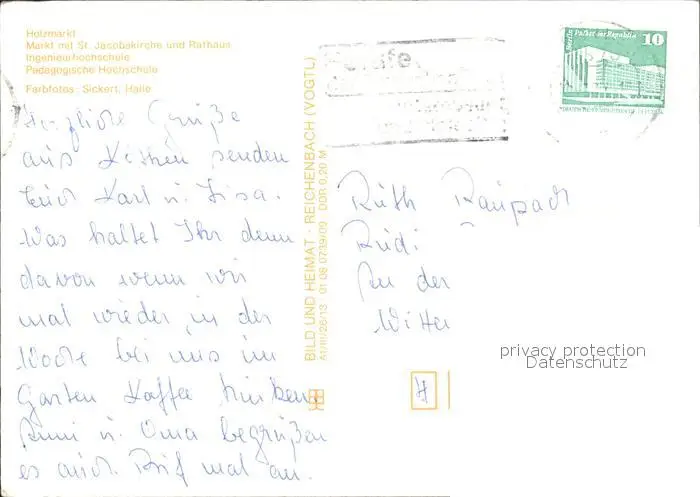 Holzmarkt
Markt mit St. Jacobskirche und Rathaus
Ingenieurhochschule
Pädagogische Hochschule
Farbfotos: Sickert, Halle
Herzliche Grüße
aus Köthen senden
Euch Karl u. Lisa.
Was haltet Ihr denn
davon wenn wir
mal wieder in der
Woche bei uns im
Garten Kaffee trinken
Rumi u. Oma begrüßen
es auch. Ruf mal an.
BILD UND HEIMAT · REICHENBACH (VOGTL)
A1/III/26/13 01 08 0739/09 DDR 0,20 M
Berlin Palast der Republik
10
Ruth Raupach
Rudi
An der
Witter
privacy protection
Datenschutz